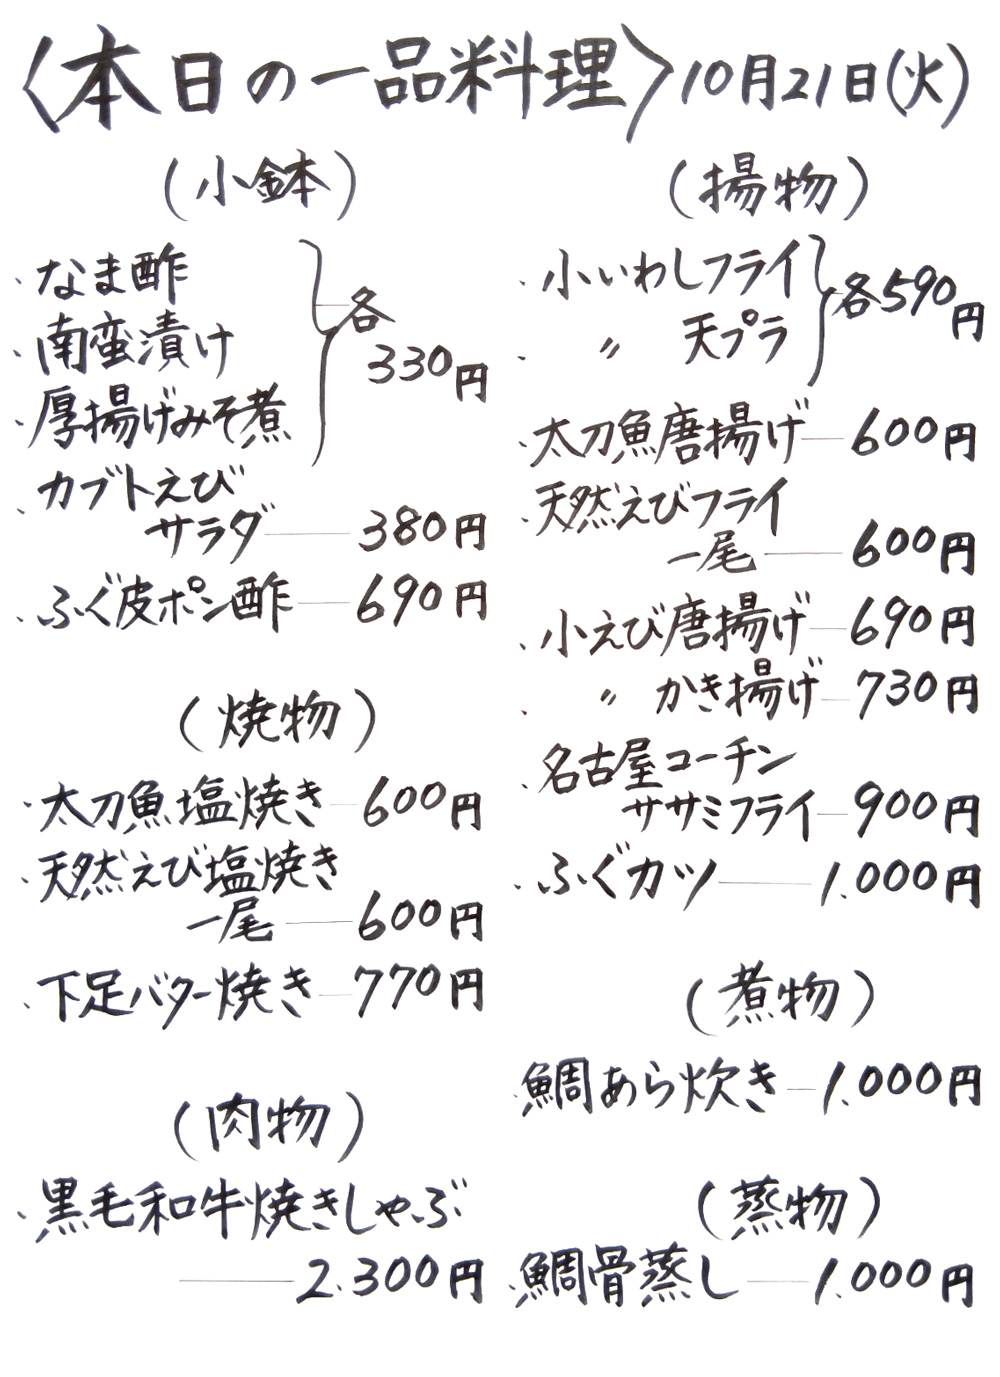 〈本日の一品料理〉10月21日(火)
(小鉢)
・なま酢
・南蛮漬け
・厚揚げみそ煮
各
330円
・カブトえび
サラダ―380円
・ふぐ皮ポン酢―690円
(焼物)
・太刀魚塩焼き―600円
・天然えび塩焼き
一尾―600円
・下足バター焼き―770円
(肉物)
・黒毛和牛焼きしゃぶ
―2.300円
(揚物)
・小いわしフライ
・〃 天プラ
各590円
・太刀魚唐揚げ―600円
・天然えびフライ
一尾―600円
・小えび唐揚げ―690円
・〃 かき揚げ―730円
・名古屋コーチン
ササミフライ―900円
・ふぐカツ―1.000円
(煮物)
・鯛あら炊き―1.000円
(蒸物)
・鯛骨蒸し―1.000円